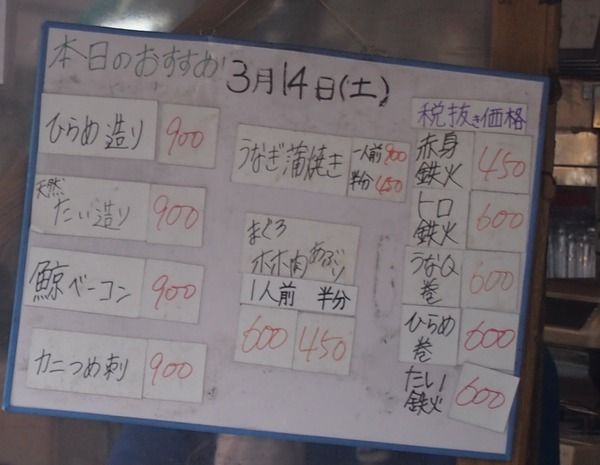 本日のおすすめ 3月14日(土)
ひらめ造り 900
天然
たい造り 900
鯨ベーコン 900
カニつめ刺 900
うなぎ蒲焼き 一人前 900
半分 450
まぐろ
ホホ肉 あぶり
1人前 半分
600 450
税抜き価格
赤身
鉄火 450
トロ
鉄火 600
うなQ
巻 600
ひらめ
巻 600
たい
鉄火 600